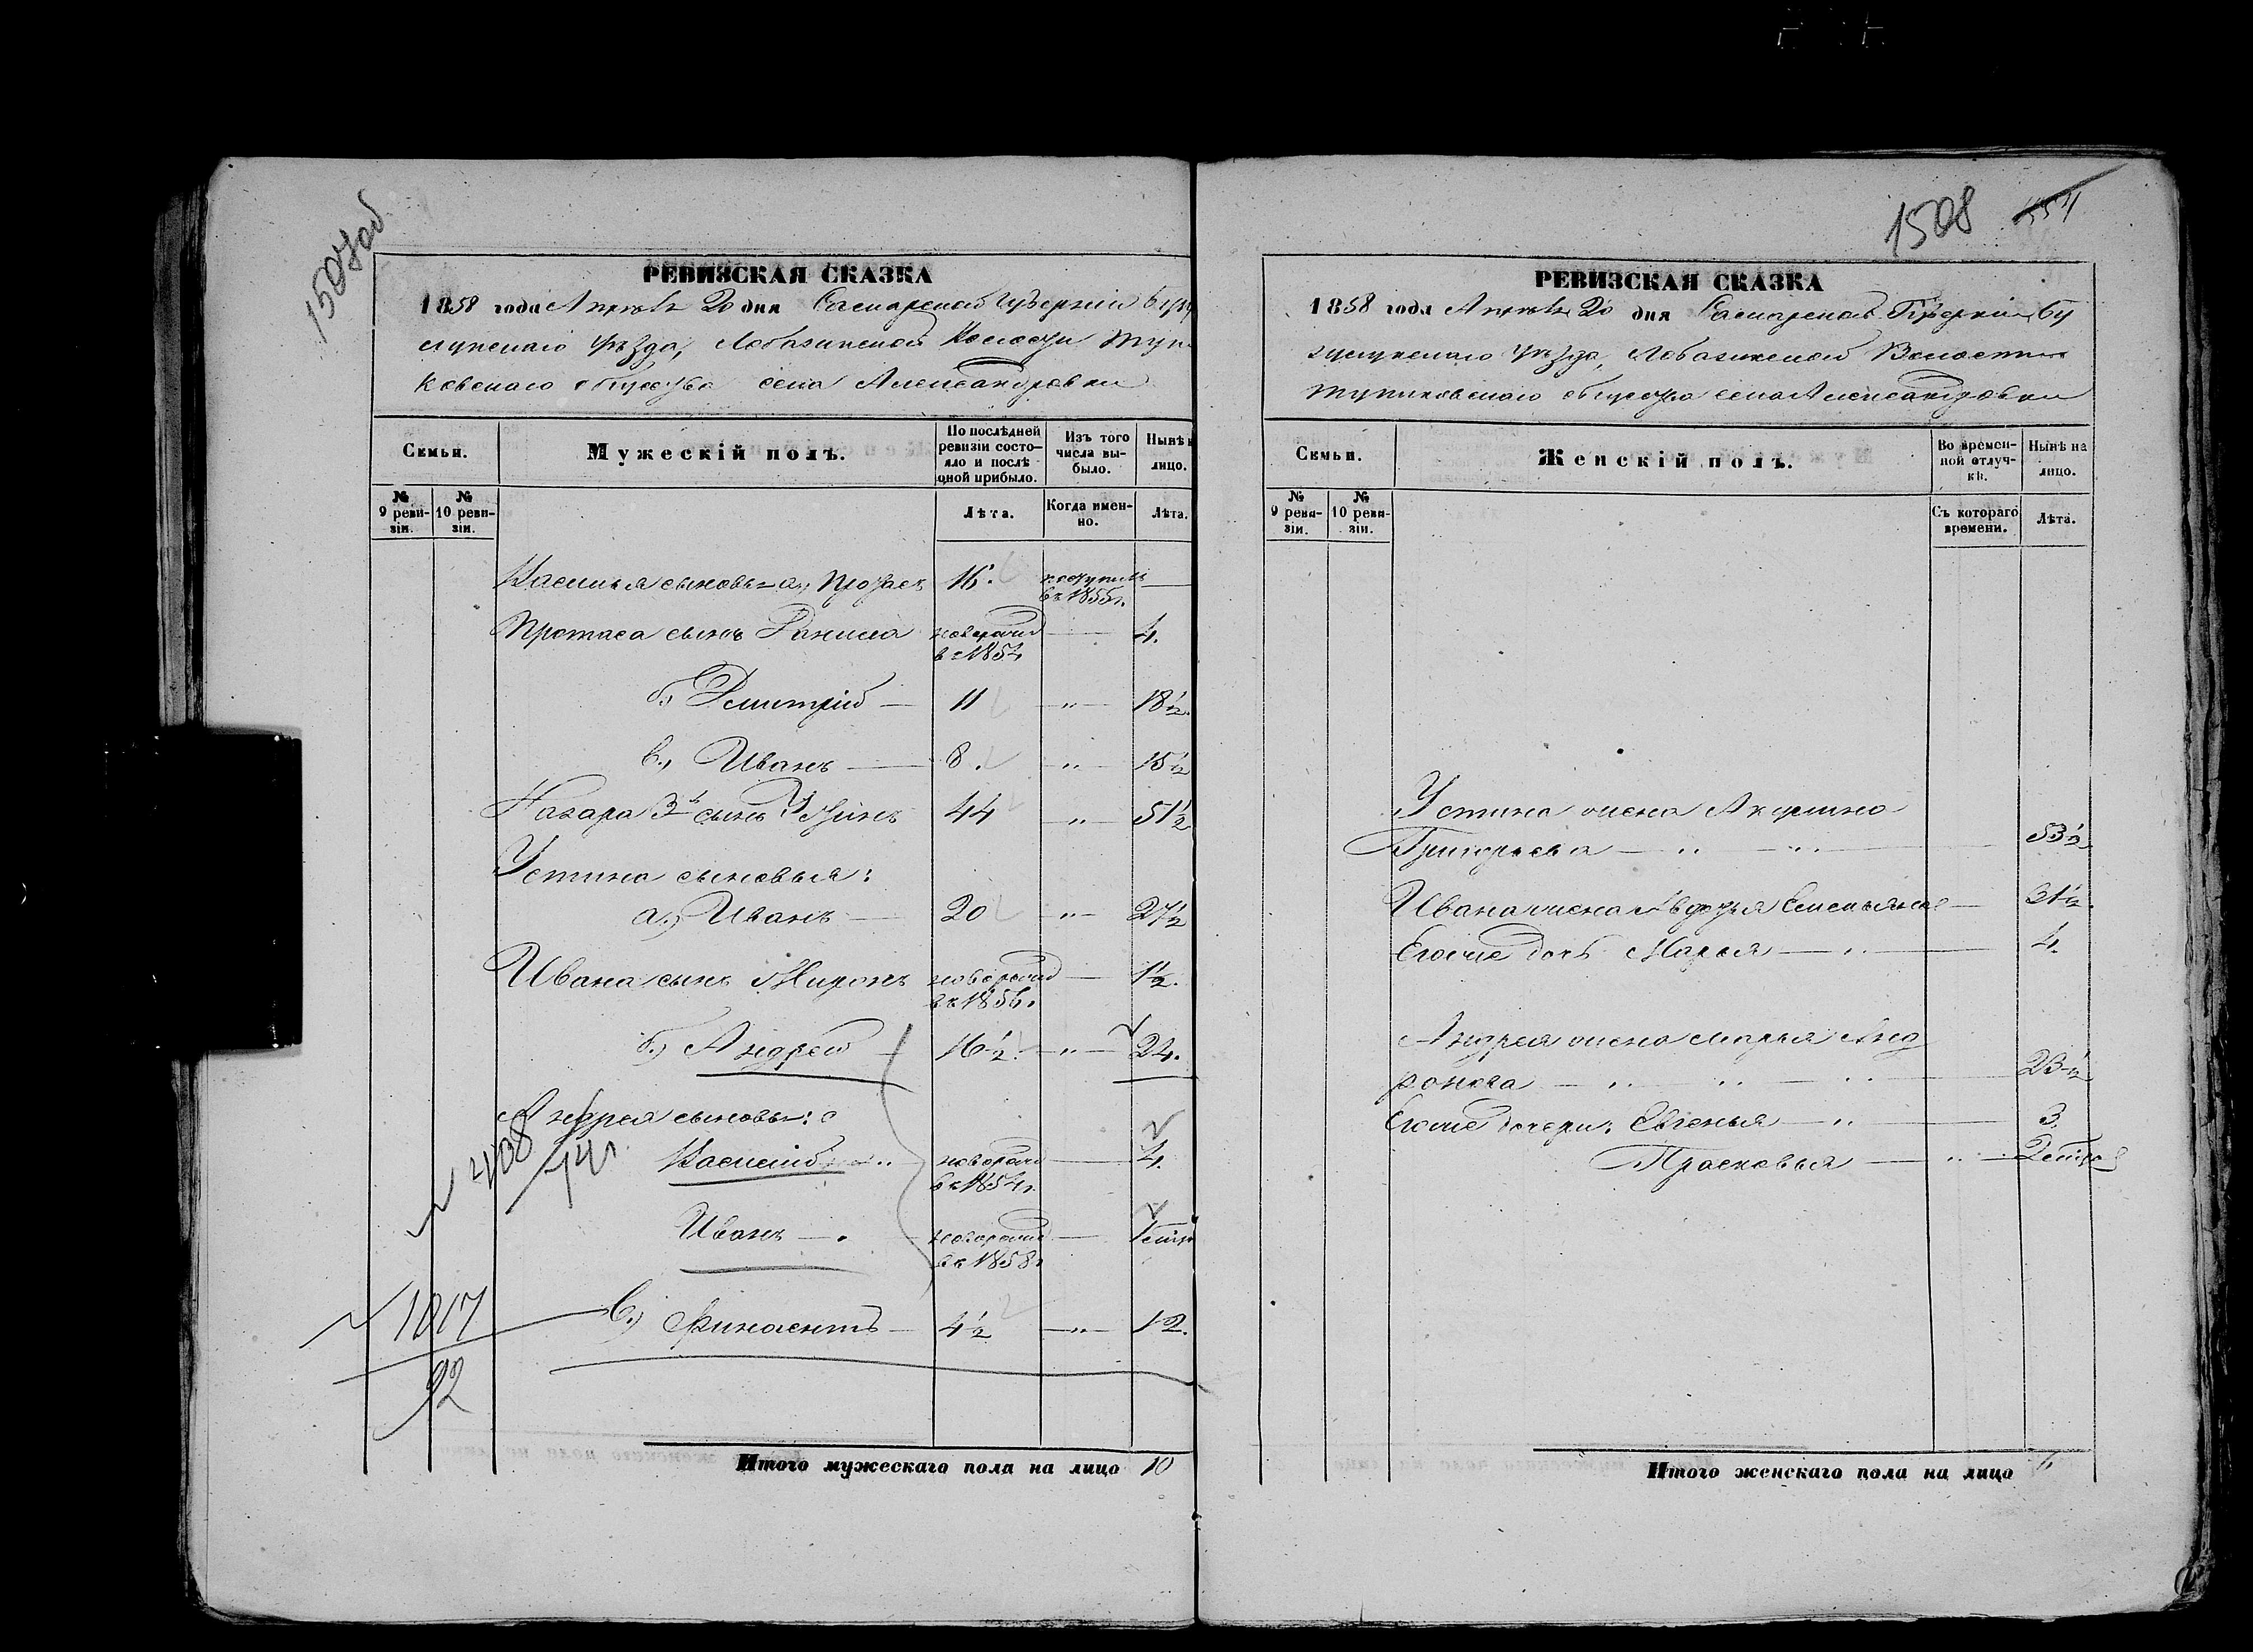 1507об
РЕВИЗСКАЯ СКАЗКА
1858 года Апрѣля 20 дня Самарской Губерніи Бузу
лукскаго уѣзда, Лобазинской Волости Тупи
ковскаго общества села Александровки
Семьи.
Мужескій полъ.
По послѣдней ревизіи состояло и послѣ оной прибыло.
Изъ того числа выбыло.
Нынѣ
лицо.
№ 9 ревизіи.
№ 10 ревизіи.
Лѣта.
Когда именно.
Лѣта.
Василья сыновья а., Протасъ 16. поступилъ —
въ 1855г.
Протаса сынъ Данила новорожд — 4.
въ 1854
б., Дмитрій — 11 — " — 18½.
в., Иванъ — 8. — " — 15½
Назара 3й сынъ Устинъ 44 — " — 51½
Устина сыновья:
а., Иванъ — 20 — " — 27½
Ивана сынъ Миронъ новорожд — 1½.
въ 1856.
б., Андрей — 16½. — " — 24.
Андрея сыновья:
Василій новорожд — 4.
въ 1854г.
Иванъ — новорожд —
въ 1858г
в., — 4½ — " — 12.
1017
92
Итого мужескаго пола на лицо 10
1508
РЕВИЗСКАЯ СКАЗКА
1858 года Апрѣля 20 дня Самарской Губерніи Бу
зулукскаго уѣзда, Лобазинской Волости
Тупиковскаго общества села Александровки
Семьи.
Женскій полъ.
Во временной отлучкѣ.
Нынѣ на лицо.
№ 9 ревизіи.
№ 10 ревизіи.
Съ котораго времени.
Лѣта.
Устина жена Акулина
Григорьева — " — " — 53½
Ивана жена Авдотья Емельянова — 31½.
Егоже дочь Марья — " — 4.
Андрея жена Марья Анд
ронова — " — " — " — 23½
Егоже дочери: Евгенья — " — 3.
Прасковья — " —
Итого женскаго пола на лицо 6